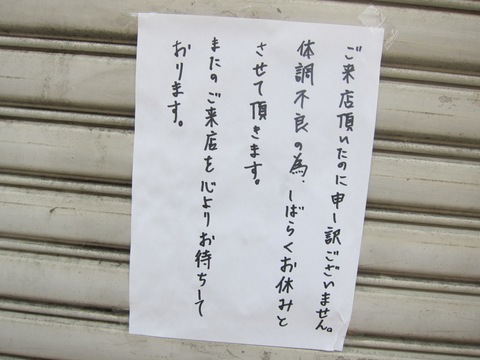 ご来店頂いたのに申し訳ございません。
体調不良の為、しばらくお休みと
させて頂きます。
またのご来店を心よりお待ちして
おります。